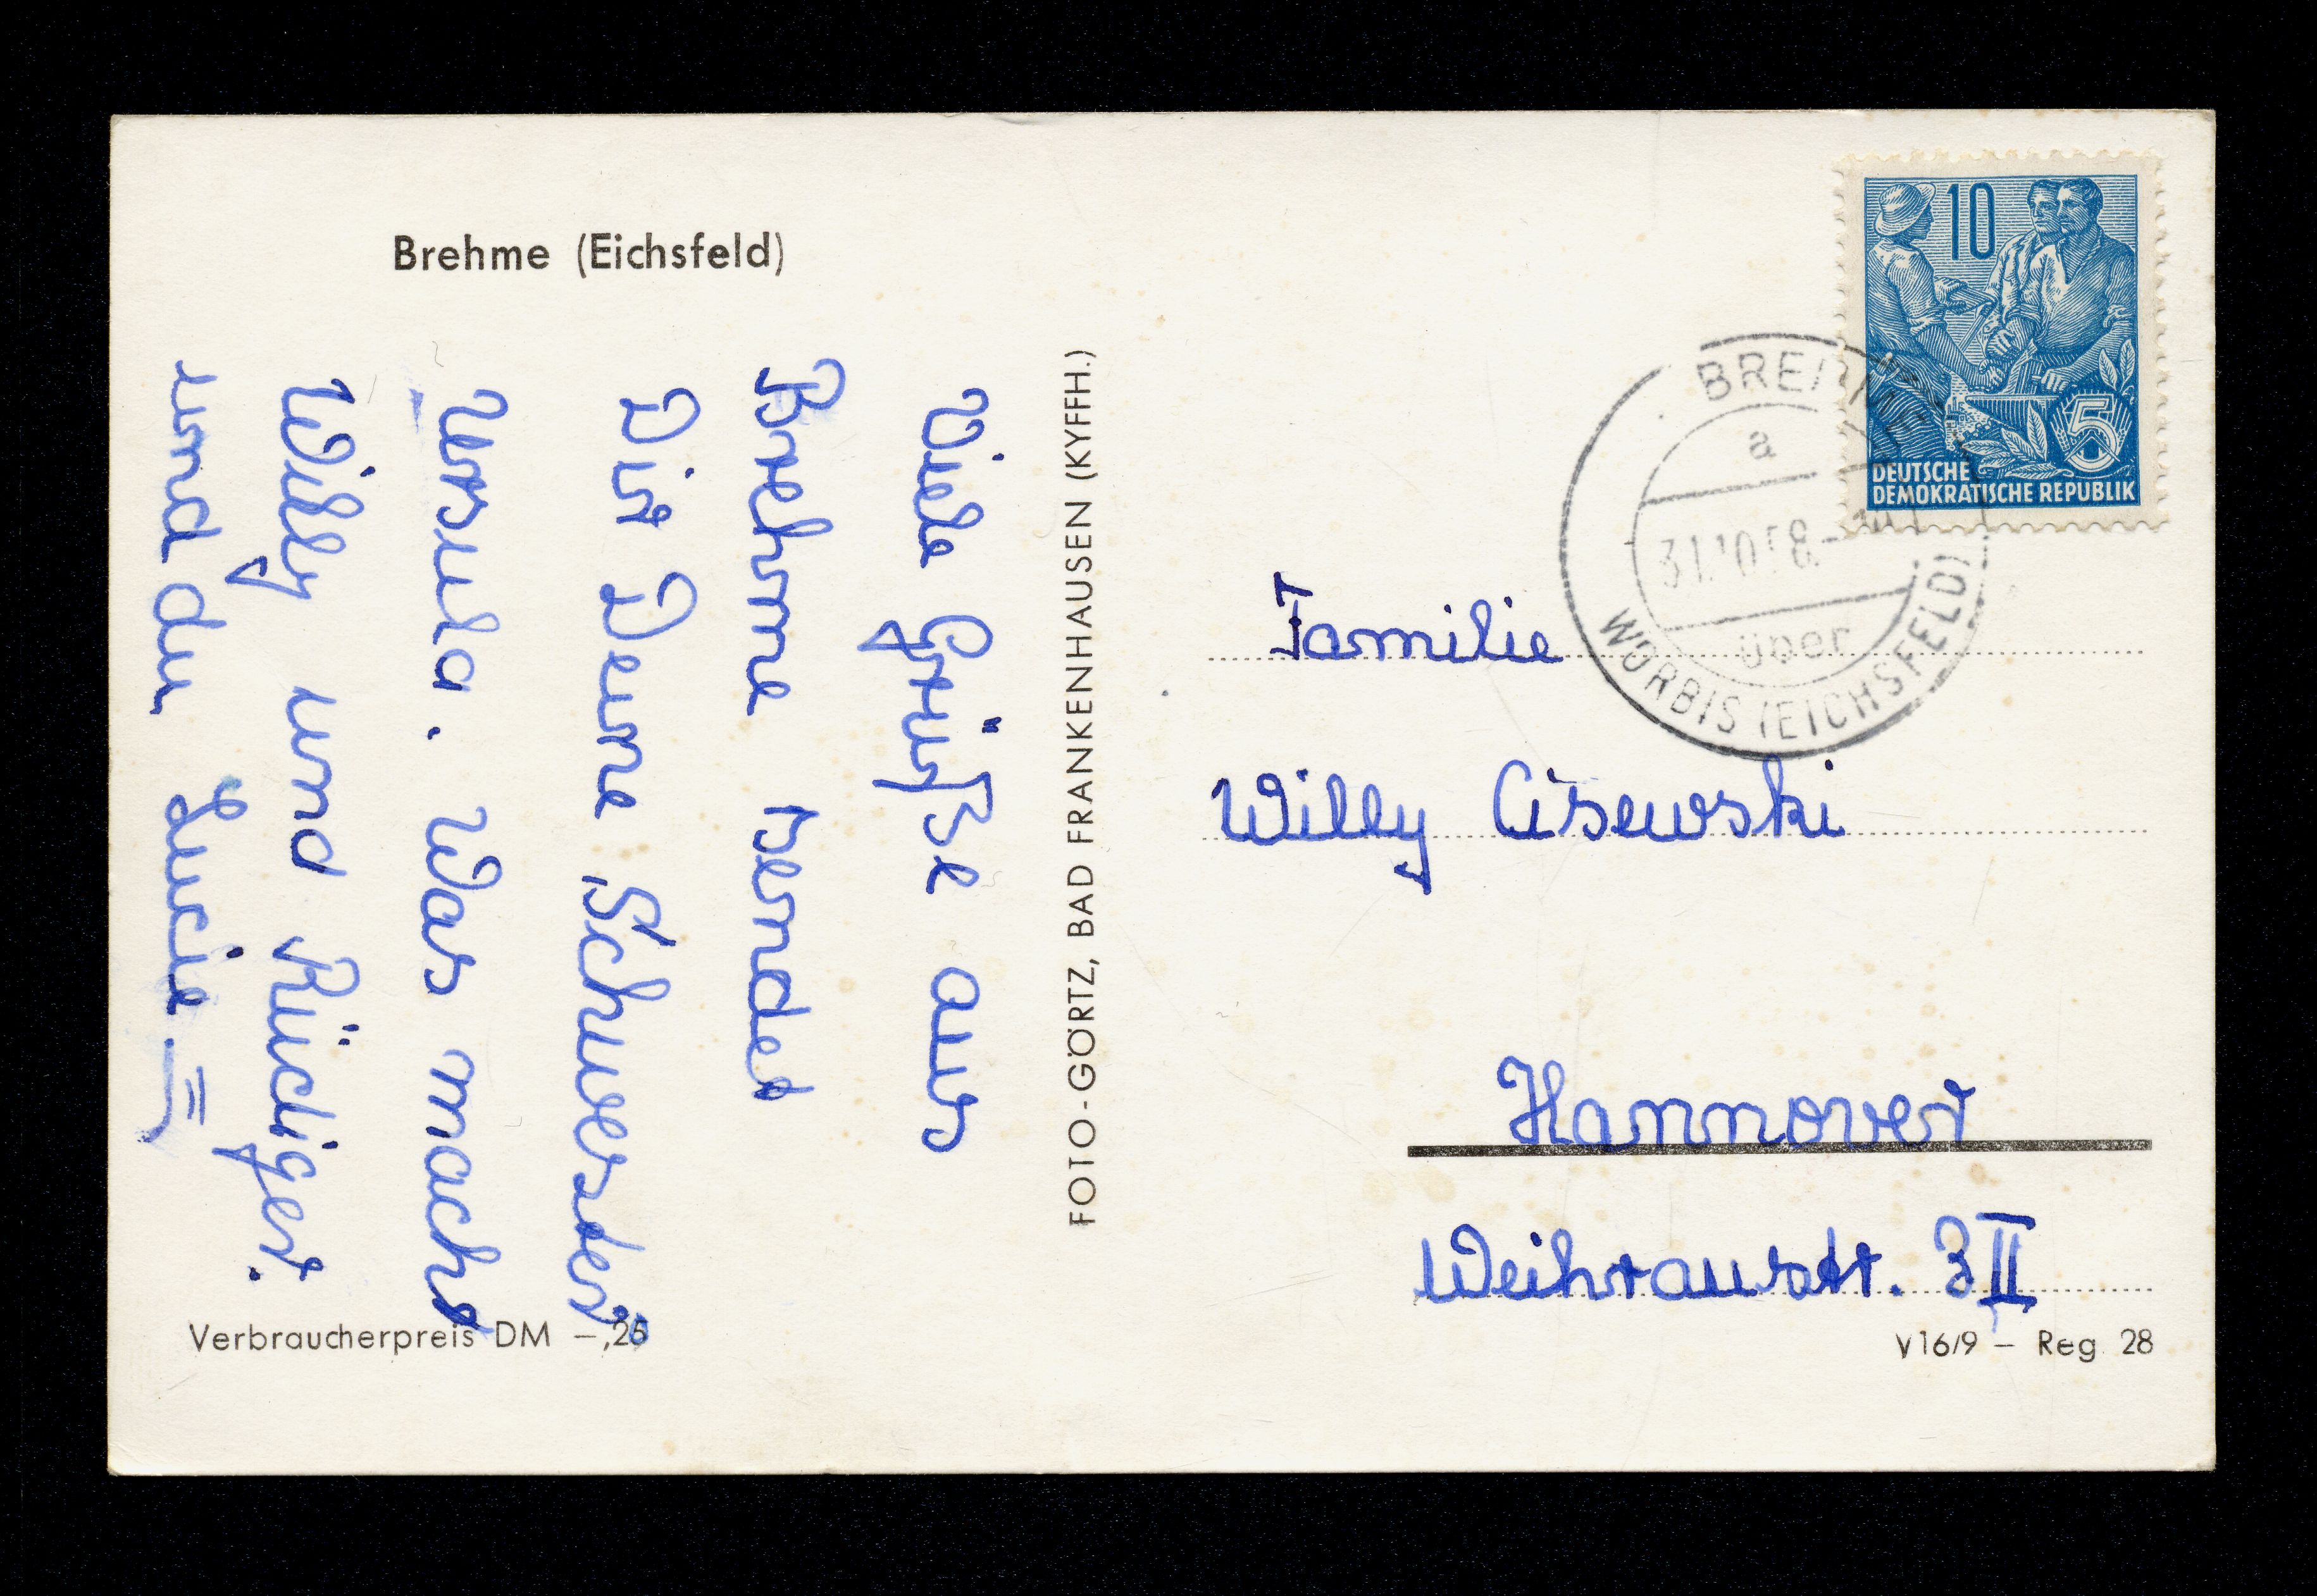 Brehme (Eichsfeld)
Viele Grüße aus
Brehme sendet
Dir Deine Schwester
Ursula. Was macht
Willy und Rüdiger.
und du Lucie
FOTO-GÖRTZ, BAD FRANKENHAUSEN (KYFFH.)
Verbraucherpreis DM –,25
10
5
DEUTSCHE
DEMOKRATISCHE REPUBLIK
BREHME
a
31.10.58.-
über
WORBIS (EICHSFELD)
Familie
Willy Cisewski
Hannover
Weihraustr. 3 II
V 16/9 – Reg. 28